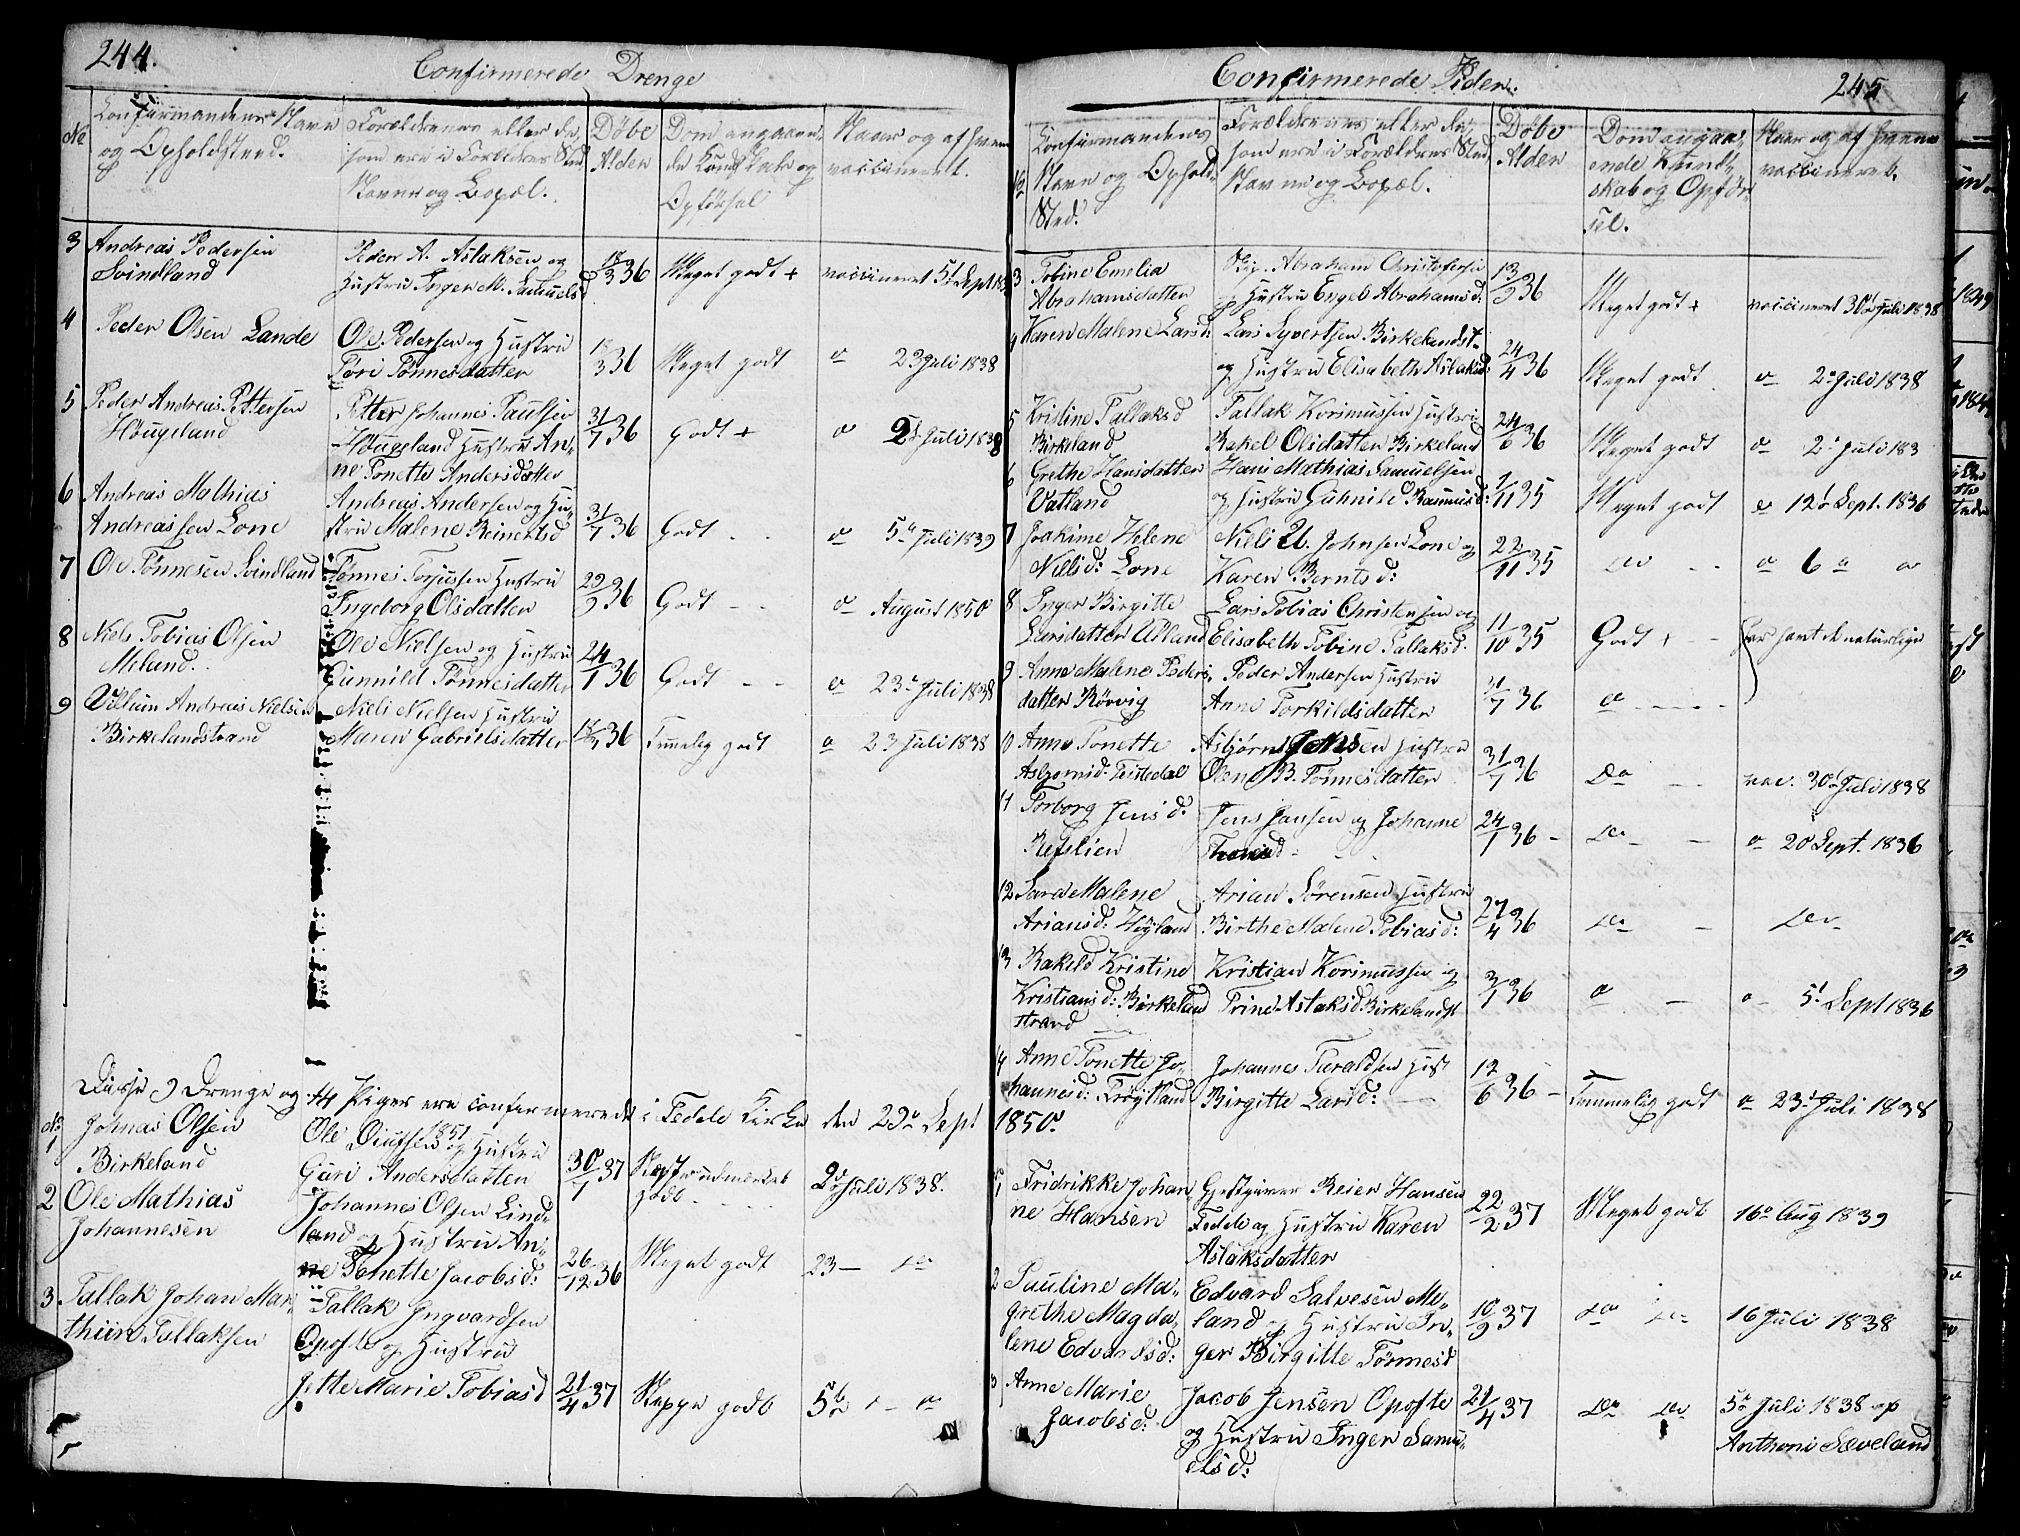 244.
Confirmerede Drenge
No
Confirmandens Navn
og Opholdssted.
Forældrenes eller de,
som ere i Forældres Sted
Navne og Bopæl.
Døbe
Alder
Dom angaaen-
de Kundskab og
Opførsel
Naar og af hvem
vaccineret.
3 Andreas Pedersen
Svindland
Peder A. Aslaksen og
Hustru Inger M. Samuelsd
18/3 36
Meget godt +
vaccineret 5t Sept
4 Peder Olsen Lande
Ole Pedersen og Hustru
Tori Tønnesdatter
36
Meget godt
23 Juli 1838
5 Peder Andreas Pettersen
Hougeland
Petter Johannes Paulsen
Hougeland Hustru An-
ne Tonette Andersdatter
31/7 36
Godt +
2 Juli 1838
6 Andreas Mathias
Andreassen Lone
Andreas Andersen og Hu-
stru Malene Reinertsd
31/7 36
Godt - -
5 Juli 1839
7 Ole Tønnesen Svindland
Tønnes Torjussen Hustru
Ingeborg Olsdatter
29/9 36
Godt - -
August 1850
8 Niels Tobias Olsen
Meland.
Ole Nielsen og Hustru
Gunnild Tønnesdatter
24/1 36
Godt - -
23 Juli 1838
9 Villum Andreas Nielsen
Birkelandstrand
Niels Nielsen Hustru
Maren Gabrielsdatter
36
Temmelig godt
23 Juli 1838
Disse 9 Drenge og 14 Piger ere confirmerede i Fedde Kirke den 29 Sept
1851
No
1 Johnas Olsen
Birkeland
Ole Omfsen og Hustru
Guri Andersdatten
30/1 37
Meget udmærket
godt
2 Juli 1838.
2 Ole Mathias
Johannesen
Johannes Olsen Lind-
land og Hustru An-
ne Tonette Jacobsd:
26/12 36
Meget godt
23 -
3 Tallak Johan Mar-
thin Tallaksen
Tallak Ingvardsen
Opofte og Hustru
Jette Marie Tobiasd
21/4 37
Meget godt
5
245
Confirmerede Piger.
No
Confirmandens
Navn og Ophold-
Sted.
Forældrenes eller de
som ere i Forældres Sted
Navne og Bopæl.
Døbe
Alder
Dom angaa-
ende Kund-
skab og Opfør-
sel.
Naar og af hvem
vaccineret.
3 Tobine Emelia
Abrahamsdatter
Abraham Christofersen
og Hustru Engel Abrahamsd:
13/9 36
Meget godt +
vaccineret 30 Juli 1838
4 Karen Malene Larsd:
Lars Syvertsen Birkelandst.
og Hustru Elisabeth Aslaksd:
24/4 36
Meget godt
2 Juli 1838
5 Kristine Tallaksd
Birkeland
Tallak Korsmussen Hustru
Rakel Olsdatter Birkeland
24/6 36
Meget godt
2 Juli 183
6 Grethe Hansdatter
Vatland
Hans Mathias Samuelsen
og Hustru Gunnild Rasmusd:
11 35
Meget godt
12 Sept. 1836
7 Joakime Helene
Nielsd: Lone
Niels U. Johnsen Lone og
Karen Berntsd:
22/11 35
do - -
6
8 Inger Birgitte
Larsdatter Udland
Lars Tobias Christensen og
Elisabeth Tobine Tallaksd.
11/10 35
Godt + - -
har havt de naturlige
9 Anne Malene Peders-
datter Røvvig
Peder Andersen Hustru
Anne Torkildsdatter
31/7 36
10 Anne Tonette
Asbjornsd: Feistedal
Asbjørn Jensen Hustru
Olene B. Tønnesdatter
31/7 36
Do
vac. 30 Juli 1838
11 Torborg Jensd:
Refslien
Jens Jansen og Johanne
24/1 36 -
do -
20 Sept. 1836
12 Sara Malene
Ariansd: Høyland
Arian Sørensen Hustru
Birthe Malene Tobiasd:
27/4 36
do -
do
13 Rakeld Kristine
Kristiansd: Birkeland
strand
Kristian Korsmussen og
Trine Aslaksd: Birkelandst
3/1 36
5t Sept 1836
14 Anne Tonette Jo-
hannesd: Frøytland
Johannes Taraldsen Hust
Birgitte Larsd:
12/6 36 -
Temmelig godt
23 Juli 1838
1850.
1 Fridrikke Johan
ne Hansen
Gjestgiver Reier Hansen
Fedde og Hustru Karen
Aslaksdatter
22/2 37
Meget godt
16 Aug 1839
2 Pauline Ma-
grethe Magda-
lene Edvardsd:
Edvard Salvesen Me-
land og Hustru In-
ger Birgitte Tønnesd
10/3 37
do do
16 Juli 1838
3 Anne Marie
Jacobsd:
Jacob Jensen Opofte
og Hustru Inger Samu-
elsd:
21/4 37
Do do
5 Juli 1838 af
Anthoni Sæveland